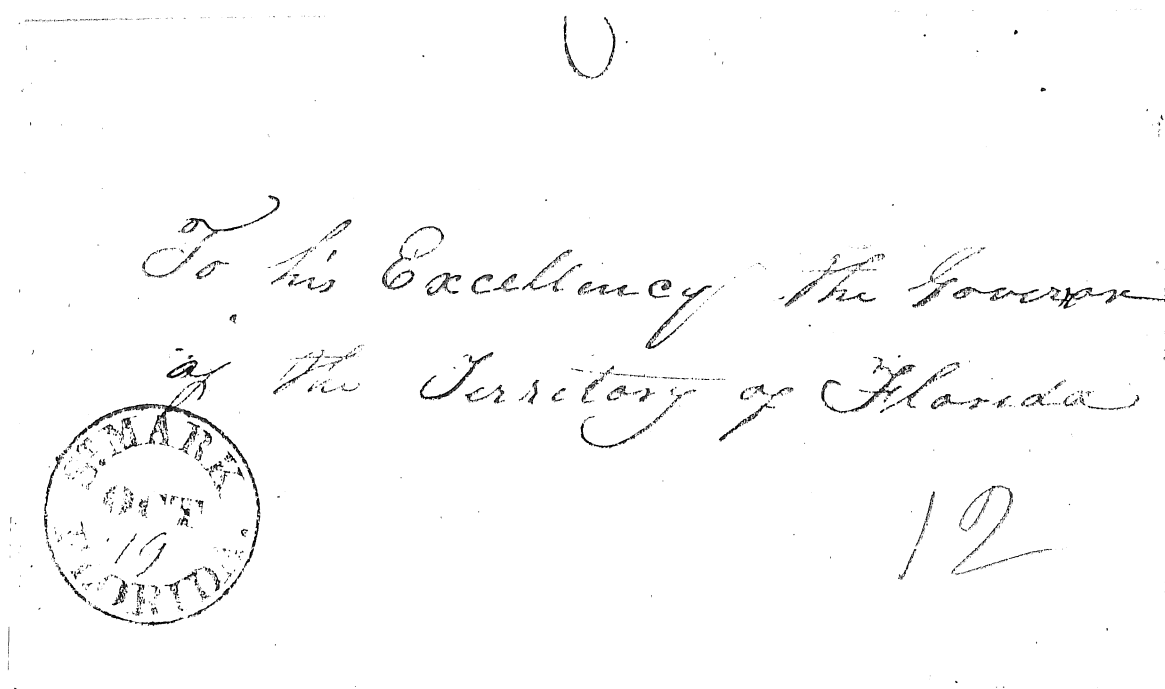 To his Excellency the Governor
of the Territory of Florida
ST. MARK
OCT
19
FLORIDA
12